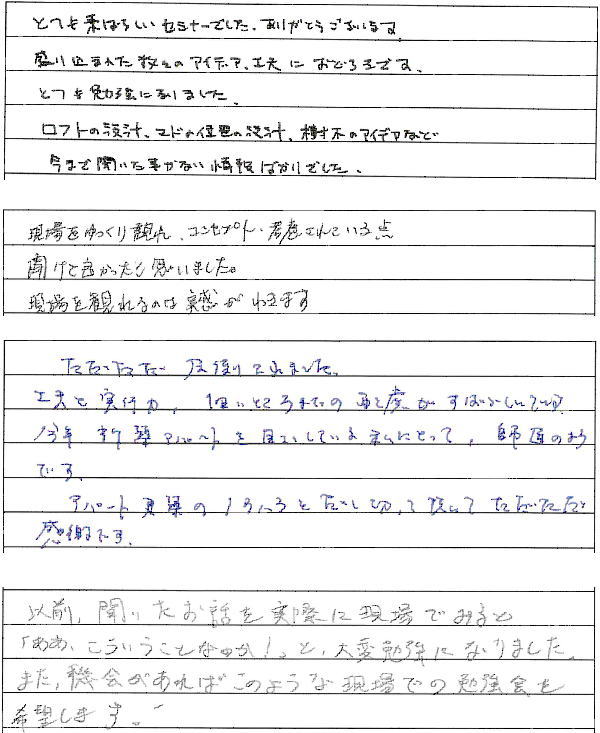 とても素ばらしいセミナーでした。ありがとうございます
盛り込まれた数々のアイディア、工夫におどろきです。
とても勉強になりました。
ロフトの設計、マドの位置の設計、樹木のアイデアなど
今まで聞いた事がない情報ばかりでした。
現場をゆっくり観れ、コンセプト・考慮されている点
聞けて良かったと思いました。
現場を観れるのは実感がわきます
ただただ圧倒されました。
工夫と実行力、細いところまでの配慮がすばらしいです。
今年、新築アパートを目指している私にとって、師匠のよう
です。
アパート建築のノウハウを
感謝です。
以前、聞いたお話を実際に現場でみると
「ああ、こういうことなのか!」と、大変勉強になりました。
また、機会があればこのような現場での勉強会を
希望します。